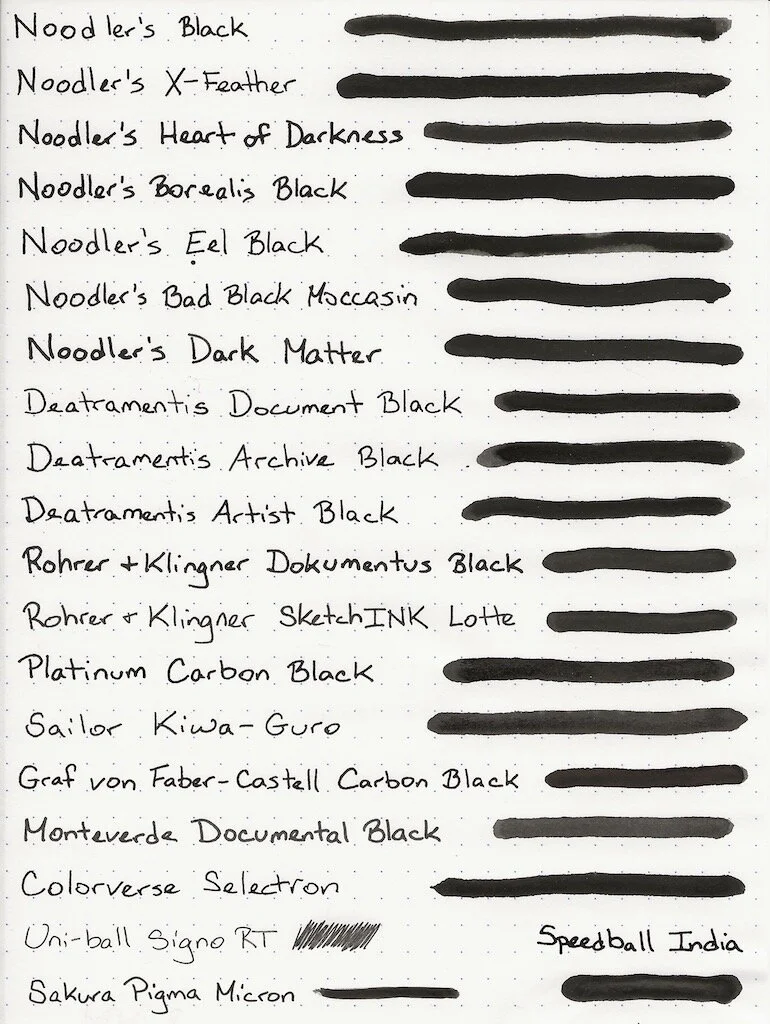 Noodler's Black
Noodler's X-Feather
Noodler's Heart of Darkness
Noodler's Borealis Black
Noodler's Eel Black
Noodler's Bad Black Moccasin
Noodler's Dark Matter
Deatramentis Document Black
Deatramentis Archive Black
Deatramentis Artist Black
Rohrer + Klingner Dokumentus Black
Rohrer + Klingner SketchINK Lotte
Platinum Carbon Black
Sailor Kiwa-Guro
Graf von Faber-Castell Carbon Black
Monteverde Documental Black
Colorverse Selectron
Uni-ball Signo RT
Speedball India
Sakura Pigma Micron